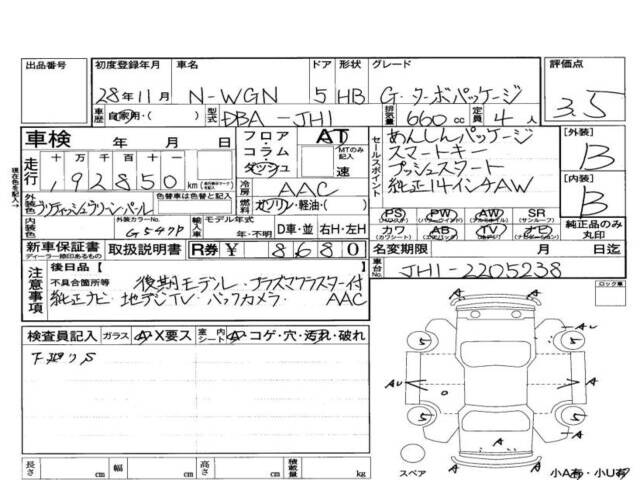 出品番号 初度登録年月 車名 ドア 形状 グレード 評価点
28年11月 N-WGN 5 HB G・ターボパッケージ 3.5
車歴 自家用・( ) 型式 DBA-JH1 排気量 660cc 定員 4人
車検 年 月 日
フロア コラム ダッシュ AT MTのみ記入 速
セールスポイント
あんしんパッケージ
スマートキー
プッシュスタート
純正14インチAW
[外装] B
[内装] B
現在色を記入→
走行 十 万 千 百 十 一
92850 km
冷房 AAC
燃料 ガソリン・軽油・( )
外装色 ブリティッシュグリーンパール
色替車は色替前の色
内装色 外装カラーNo. G549P
輸入車 モデル年式 年・不明 D車・並 右H・左H
PS PW AW SR (サンルーフ)
カワ (カワシート) AB (エアバッグ) TV ナビ (ナビゲーション)
純正品のみ丸印
新車保証書 ディーラー捺印あるもの 取扱説明書 R券 ¥ 8680
名変期限 月 日迄
車台No. JH1-2205238
注意事項
後日品 [ ]
不具合箇所等 後期モデル・プラズマクラスター付
純正ナビ・地デジTV・バックカメラ・ AAC
ロック車
検査員記入 ガラス A・X要ス 室内シート A・コゲ・穴・汚れ・破れ
下廻りS
5 5 5 5
A A A A A AU AU
スペア
小A有・小U有
長さ cm 幅 cm 高さ cm 積載量 kg